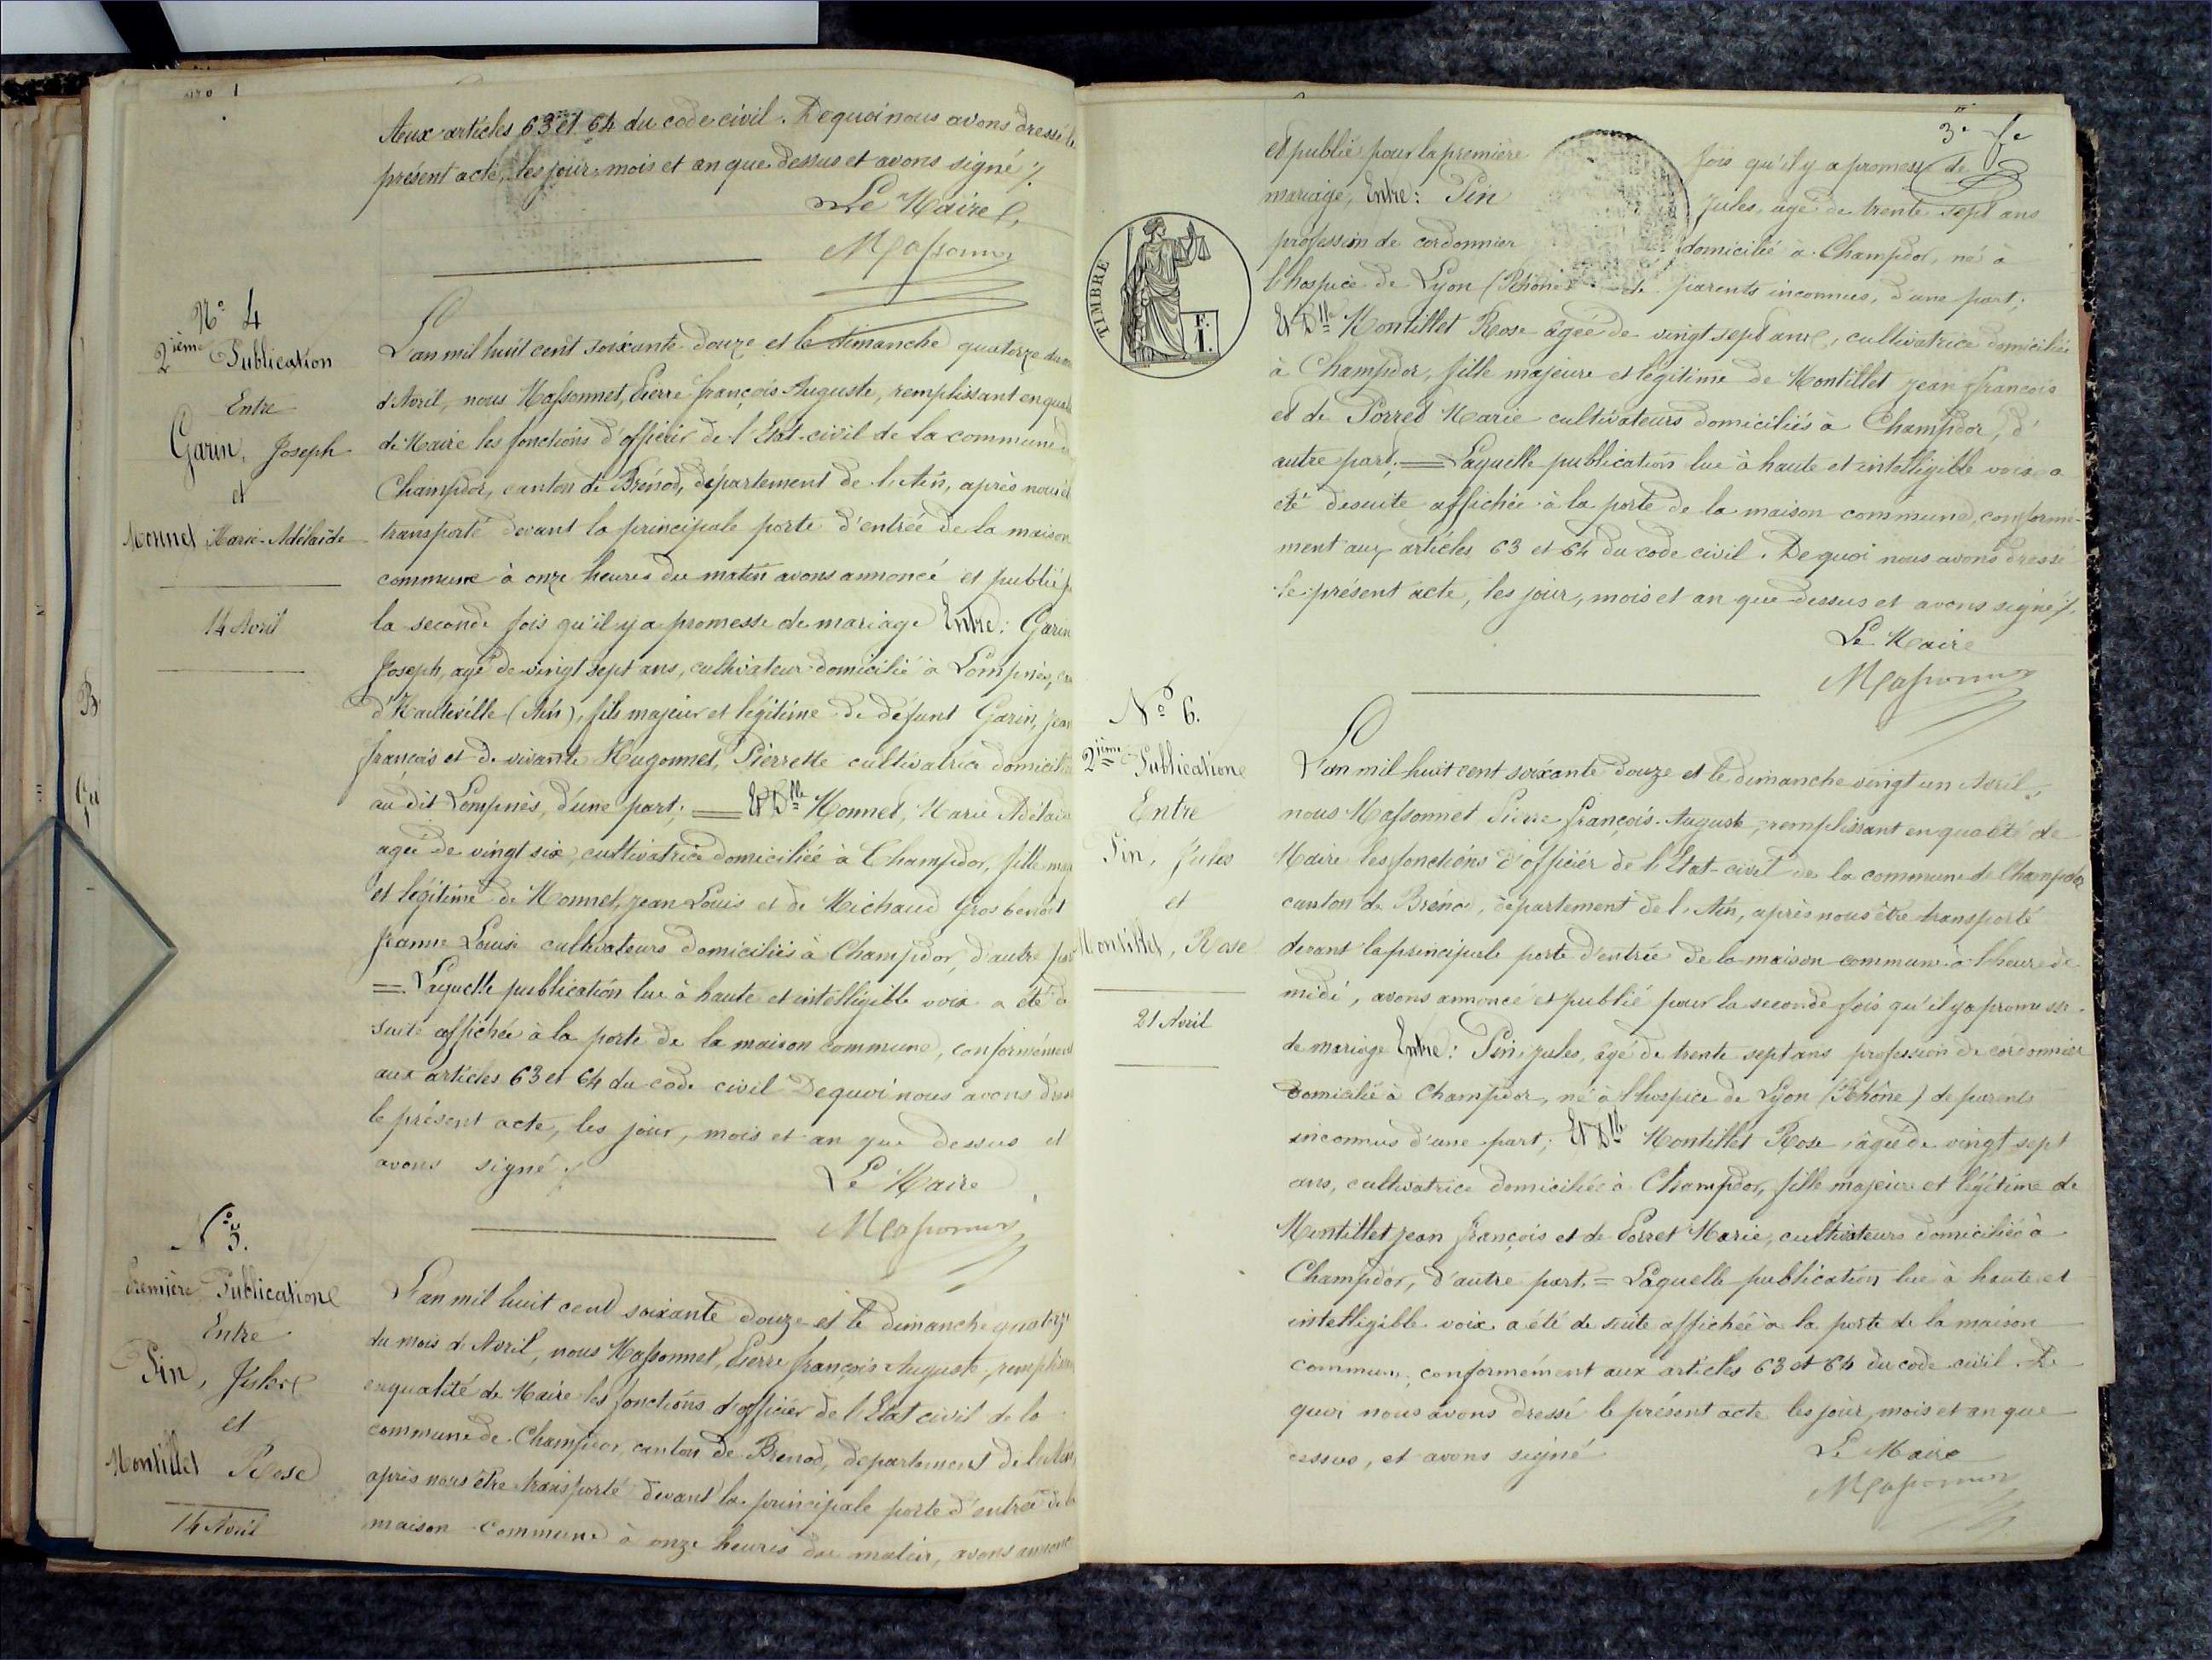 Aux articles 63 et 64 du code civil. De quoi nous avons dressé le
présent acte, les jour, mois et an que dessus et avons signé ./.
Le Maire
Massonnet
N° 4
2ième Publication
Entre
Garin, Joseph
et
Monnet Marie-Adélaïde
14 Avril
L'an mil huit cent soixante-douze et le dimanche quatorze du
d'Avril, nous Massonnet, Pierre françois Auguste, remplissant en qual
de Maire les fonctions d'officier de l'Etat-civil de la commune
Champdor, canton de Brénod, département de l'Ain, après nous
transporté devant la principale porte d'entrée de la maison
commune à onze heures du matin avons annoncé et publié p
la seconde fois qu'il y a promesse de mariage Entre: Garin
Joseph, agé de vingt sept ans, cultivateur domicilié à Lompnès,
d'Hauteville (Ain), fils majeur et légitime de défunt Garin, jean
françois et de vivante Hugonnet, Pierrette cultivatrice domicil
au dit Lompnès, d'une part; = Et Dlle Monnet, Marie Adélaïd
agée de vingt six, cultivatrice domiciliée à Champdor, fille maj
et légitime de Monnet, jean Louis et de Michaud Gros benoit
Jeanne Louise cultivateurs domiciliés à Champdor, d'autre part
= Laquelle publication lue à haute et intelligible voix a été d
suite affichée à la porte de la maison commune, conformément
aux articles 63 et 64 du code civil De quoi nous avons dres
le présent acte, les jour, mois et an que dessus et
avons signé ./.
Le Maire
Massonnet
N° 5.
Première Publication
Entre
Pin, Jules
et
Montillet Rose
14 Avril
L'an mil huit cent soixante douze et le dimanche quatorze
du mois d'Avril, nous Massonnet, Pierre françois Auguste, remplissan
en qualité de Maire les fonctions d'officier de l'Etat civil de la
commune de Champdor, canton de Brénod, département de l'Ain,
après nous être transporté devant la principale porte d'entrée de la
maison commune à onze heures du matin, avons annoncé
3e fe
et publié pour la première fois qu'il y a promesse de
mariage, Entre: Pin Jules, âgé de trente sept ans
profession de cordonnier domicilié à Champdor, né à
l'hospice de Lyon (Rhône) de parents inconnus, d'une part;
TIMBRE
F. I.
Et Dlle Montillet Rose âgée de vingt sept ans, cultivatrice domiciliée
à Champdor, fille majeure et légitime de Montillet jean françois
et de Porret Marie cultivateurs domiciliés à Champdor, d'
autre part; = Laquelle publication lue à haute et intelligible voix a
été desuite affichée à la porte de la maison commune, conformé-
ment aux articles 63 et 64 du code civil. De quoi nous avons dressé
le présent acte, les jour, mois et an que dessus et avons signé ./.
Le Maire
Massonnet
N° 6.
2ième Publication
Entre
Pin, Jules
et
Montillet, Rose
21 Avril
L'an mil huit cent soixante douze et le dimanche vingt un Avril,
nous Massonnet Pierre françois-Auguste, remplissant en qualité de
Maire les fonctions d'officier de l'Etat-civil de la commune de Champdor
canton de Brénod, département de l'Ain, après nous être transporté
devant la principale porte d'entrée de la maison commune à l'heure de
midi, avons annoncé et publié pour la seconde fois qu'il y a promesse
de mariage Entre: Pin jules, âgé de trente sept ans profession de cordonnier
domicilié à Champdor, né à l'hospice de Lyon (Rhône) de parents
inconnus d'une part; Et Dlle Montillet Rose, âgée de vingt sept
ans, cultivatrice domiciliée à Champdor, fille majeure et légitime de
Montillet jean françois et de Porret Marie, cultivateurs domiciliés à
Champdor, d'autre part. = Laquelle publication lue à haute et
intelligible voix a été de suite affichée à la porte de la maison
commune, conformément aux articles 63 et 64 du code civil. De
quoi nous avons dressé le présent acte les jour, mois et an que
dessus, et avons signé
Le Maire
Massonnet